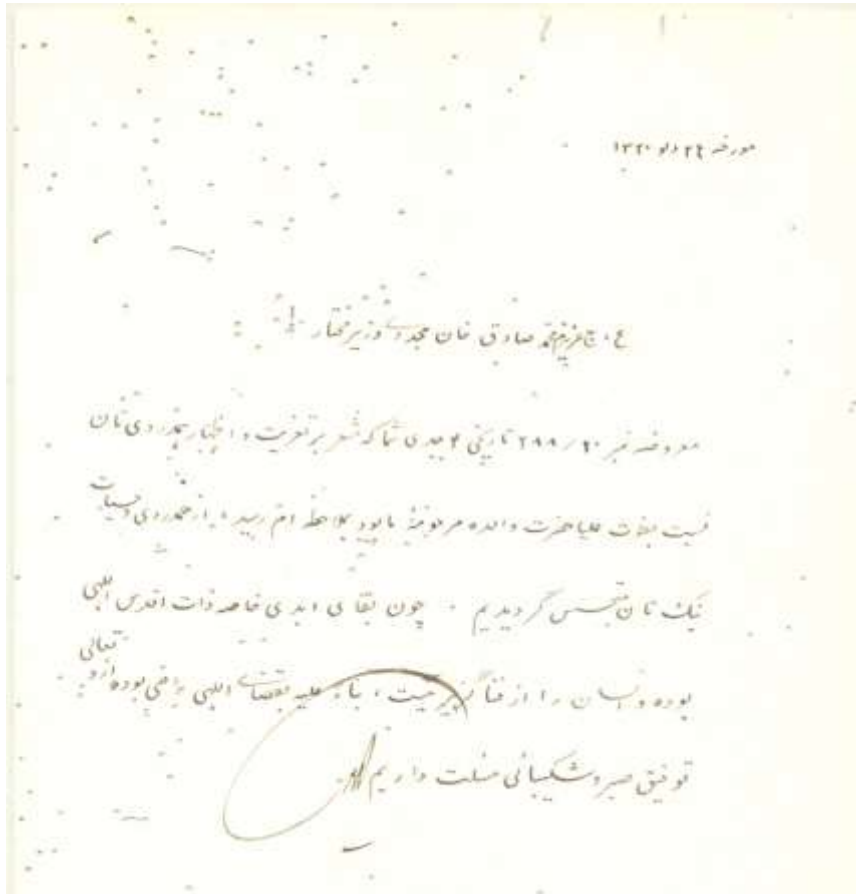 مورخه ۲۴ دلو ۱۳۲۰
ع، ج عزیزم محمد صادق خان مجددی وزیر مختار
معروضه نمبر ۲۸۸/۲۰ تاریخی ۴ جدی شما که مشعر بر تعزیت و اظهار همدردی تان
نسبت بوفات علیاحضرت والده مرحومه ما بود بملاحظه ام رسید، از همدردی و حسیات
نیک تان متحسس گردیدیم. چون بقای ابدی خاصه ذات اقدس الهی
بوده و انسان را از فنا گزیر نیست، بناءً علیه بقضای الهی راضی بوده از و تعالی
توفیق صبر و شکیبائی مسئلت داریم